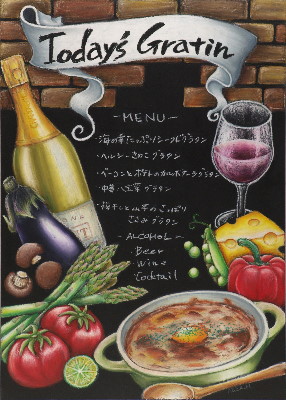 Today's Gratin
-MENU-
・海の幸たっぷりシーフードグラタン
・ヘルシーきのこグラタン
・ベーコンとポテトのカルボナーラグラタン
・中華八宝菜グラタン
・梅干しと山芋のさっぱり
ささみグラタン
-ALCOHOL-
・Beer
・Wine
・Cocktail